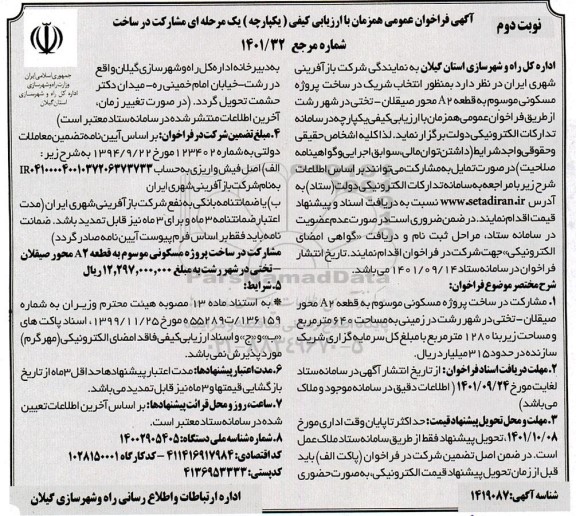 نوبت دوم
آگهی فراخوان عمومی همزمان با ارزیابی کیفی ( یکپارچه ) یک مرحله ای مشارکت در ساخت
شماره مرجع ۱۴۰۱/۳۲
جمهوری اسلامی ایران
وزارت راه و شهرسازی
اداره کل راه و شهرسازی
استان گیلان
اداره کل راه و شهرسازی استان گیلان به نمایندگی شرکت بازآفرینی
شهری ایران در نظر دارد بمنظور انتخاب شریک در ساخت پروژه
مسکونی موسوم به قطعه A۲ محور صیقلان - تختی در شهر رشت
از طریق فراخوان عمومی همزمان با ارزیابی کیفی یکپارچه در سامانه
تدارکات الکترونیکی دولت برگزار نماید. لذا کلیه اشخاص حقیقی
و حقوقی واجد شرایط (داشتن توان مالی، سوابق اجرایی و گواهینامه
صلاحیت ) در صورت تمایل به مشارکت می توانند بر اساس اطلاعات
شرح زیر با مراجعه به سامانه تدارکات الکترونیکی دولت (ستاد) به
آدرس www.setadiran.ir نسبت به دریافت اسناد و پیشنهاد
قیمت اقدام نمایند. در ضمن ضروری است در صورت عدم عضویت
در سامانه ستاد، مراحل ثبت نام و دریافت «گواهی امضای
الکترونیکی» جهت شرکت در فراخوان اقدام نمایند. تاریخ انتشار
فراخوان در سامانه ستاد ۱۴۰۱/۰۹/۱۴ می باشد.
شرح مختصر موضوع فراخوان:
۱. مشارکت در ساخت پروژه مسکونی موسوم به قطعه A۲ محور
صیقلان - تختی در شهر رشت در زمینی به مساحت ۶۴۰ مترمربع
و مساحت زیربنا ۱۲۸۰ مترمربع با مبلغ کل سرمایه گذاری شریک
سازنده در حدود ۳۱۵ میلیارد ریال.
۲. مهلت دریافت اسناد فراخوان : از تاریخ انتشار آگهی در سامانه ستاد
لغایت مورخ ۱۴۰۱/۰۹/۲۴ ( اطلاعات دقیق در سامانه موجود و ملاک
می باشد)
۳. مهلت و محل تحویل پیشنهاد قیمت: حداکثر تا پایان وقت اداری مورخ
۱۴۰۱/۱۰/۰۸، تحویل پیشنهاد فقط از طریق سامانه ستاد ملاک عمل
است. در ضمن اصل تضمین شرکت در فراخوان (پاکت الف) باید
قبل از زمان تحویل پیشنهاد قیمت الکترونیکی، به صورت حضوری
به دبیرخانه اداره کل راه و شهرسازی گیلان واقع
در رشت-خیابان امام خمینی ره- میدان دکتر
حشمت تحویل گردد. ( در صورت تغییر زمان،
آخرین اطلاعات منتشر شده در سامانه ستاد معتبر است )
۴. مبلغ تضمین شرکت در فراخوان: بر اساس آیین نامه تضمین معاملات
دولتی به شماره ۱۲۳۴۰۲ مورخ ۱۳۹۴/۹/۲۲ به شرح زیر :
الف ) اصل فیش واریزی به حساب IR۰۴۱۰۰۰۰۴۰۰۱۰۳۷۲۰۶۳۷۳۷۳۳
به نام شرکت بازآفرینی شهری ایران
ب ) یا ضمانتنامه بانکی به نفع شرکت بازآفرینی شهری ایران (مدت
اعتبار ضمانتنامه ۳ ماه و برای ۳ ماه نیز قابل تمدید باشد. ضمانت
نامه باید فقط بر اساس فرم پیوست آیین نامه صادر گردد)
مشارکت در ساخت پروژه مسکونی موسوم به قطعه A۲ محور صیقلان
- تختی در شهر رشت به مبلغ ۱۲,۲۹۷,۰۰۰,۰۰۰ ریال
۵. شرایط:
* به استناد ماده ۱۳ مصوبه هیئت محترم وزیران به شماره
۱۳۶۱۵۹/ت۵۵۲۸۹ مورخ ۱۳۹۹/۱۱/۲۵، اسناد پاکت های
«ب» و «ج» و اسناد ارزیابی کیفی فاقد امضای الکترونیکی (مهر گرم)
مورد پذیرش نمی باشد.
۶. مدت اعتبار پیشنهادها: مدت اعتبار پیشنهادها حداقل ۳ ماه از تاریخ
بازگشایی قیمتها و ۳ ماه نیز قابل تمدید می باشد.
۷. ساعت، روز و محل قرائت پیشنهادها: بر اساس آخرین اطلاعات تعیین
شده در سامانه ستاد معتبر است.
۸. شماره شناسه ملی دستگاه: ۱۴۰۰۲۹۰۵۴۰۵
کد اقتصادی: ۴۱۱۴۱۶۹۱۷۹۸۴ - کد کارگاه ۱۰۲۸۱۵۰۰۰۱
کد پستی: ۴۱۳۶۹۵۳۳۳۳
شناسه آگهی: ۱۴۱۹۰۸۷
اداره ارتباطات و اطلاع رسانی راه و شهرسازی گیلان
ParsNamadData